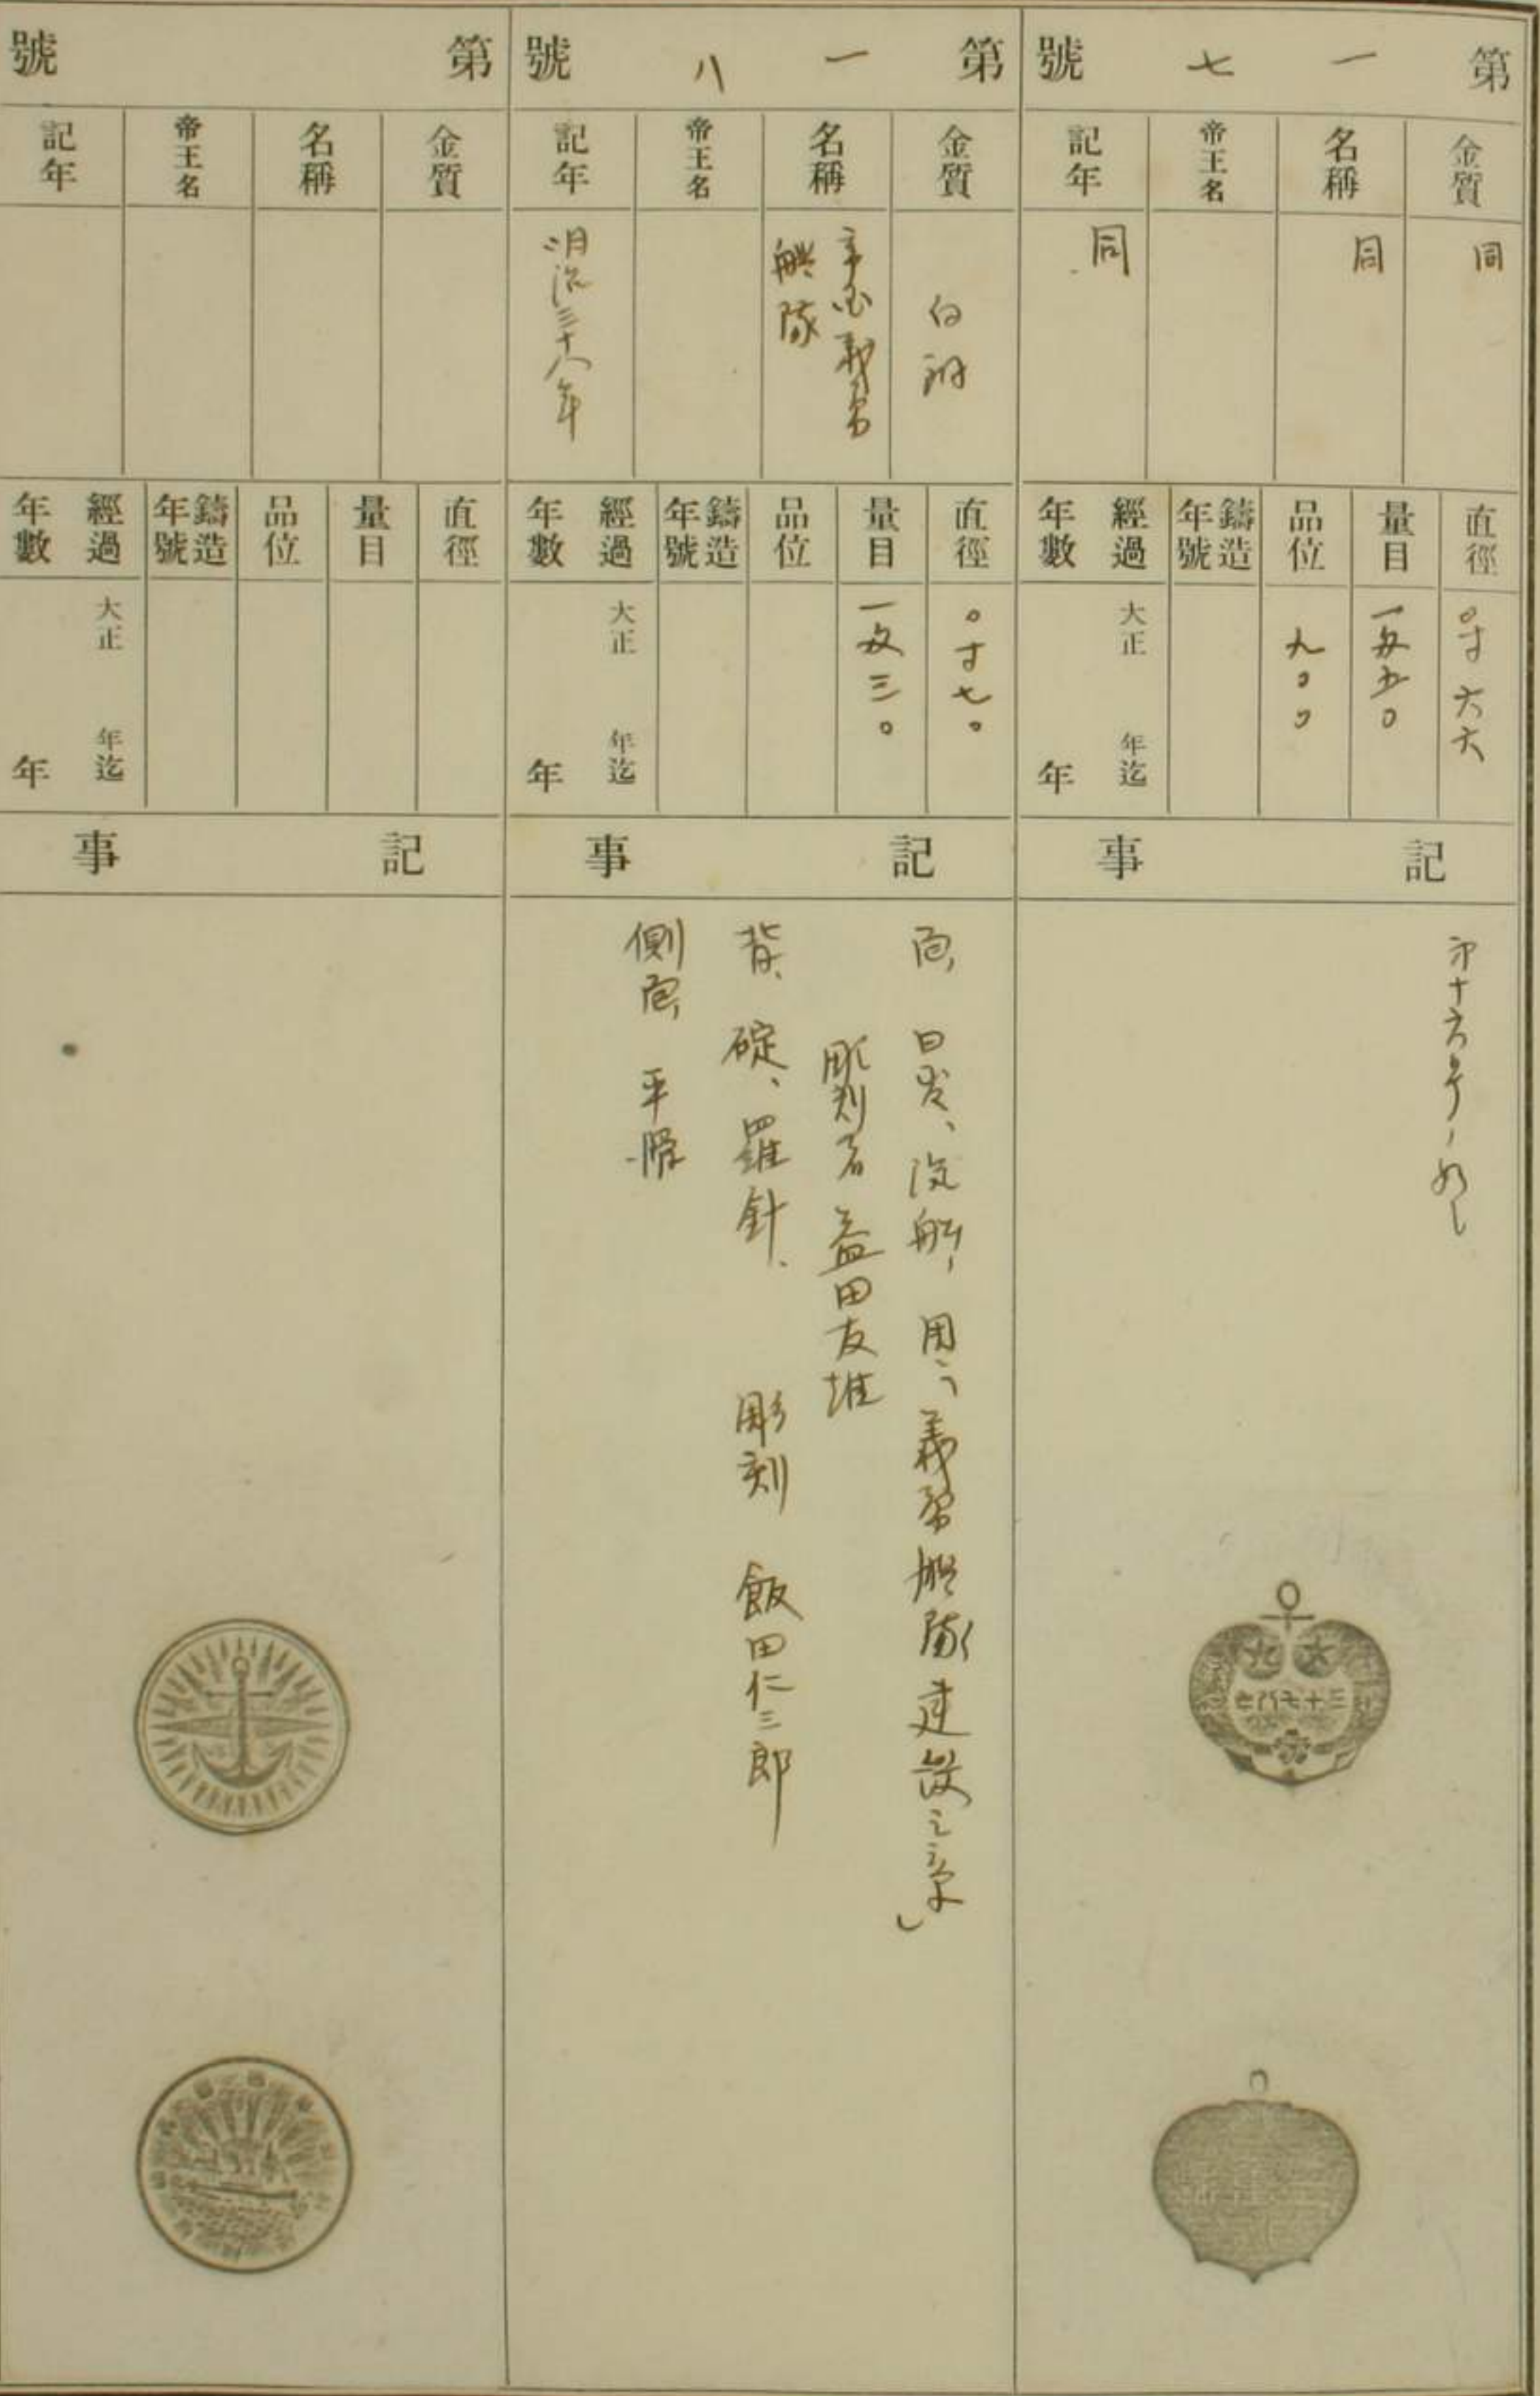 第一七號
金質
同
名稱
同
帝王名
記年
同
直徑
〇寸六六
量目
一匁五〇
品位
九〇〇
鑄造年號
經過年數
大正 年迄
年
記事
第十六号ノ如し
大九
三十七八年
第一八號
金質
白銅
名稱
帝國義勇
艦隊
帝王名
記年
明治三十八年
直徑
〇寸七〇
量目
一匁三〇
品位
鑄造年號
經過年數
大正 年迄
年
記事
面、日出、汽船、周ニ「義勇艦隊建設之章」
彫刻者 益田友雄
背、碇、羅針、 彫刻 飯田仁三郎
側面、平滑
第 號
金質
名稱
帝王名
記年
直徑
量目
品位
鑄造年號
經過年數
大正 年迄
年
記事